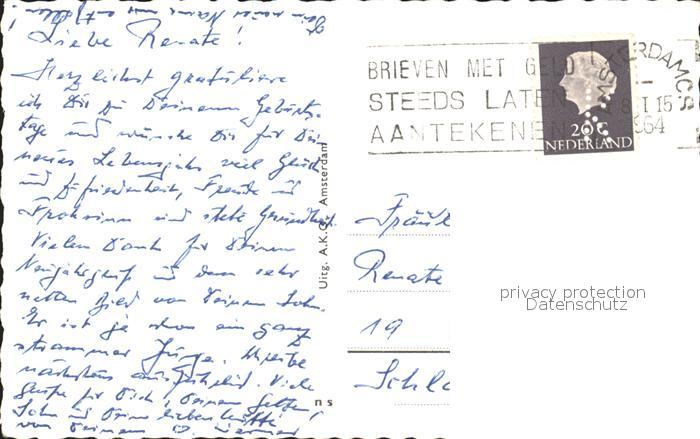 Liebe Renate!
Herzlichst gratuliere
ich Dir zu Deinem Geburts-
tage und wünsche Dir für Dein
neues Lebensjahr viel Glück
und Zufriedenheit, Freude und
Frohsinn und stets Gesundheit.
Vielen Dank für Deinen
Neujahrsgruß und dem sehr
netten Bild von Deinem Sohn.
Er ist ja schon ein ganz
strammer Junge.
nächstens ausführlich. Viele
Grüße für Dich, Deinen Gatten,
Sohn und Deine lieben
von Deinem
Uitg. A.K. Amsterdam
n s
BRIEVEN MET GELD
STEEDS LATEN
AANTEKENEN
AMSTERDAM CS
8 I 15
1964
20 c
NEDERLAND
Fräul
Renate
19
Schl
privacy protection
Datenschutz